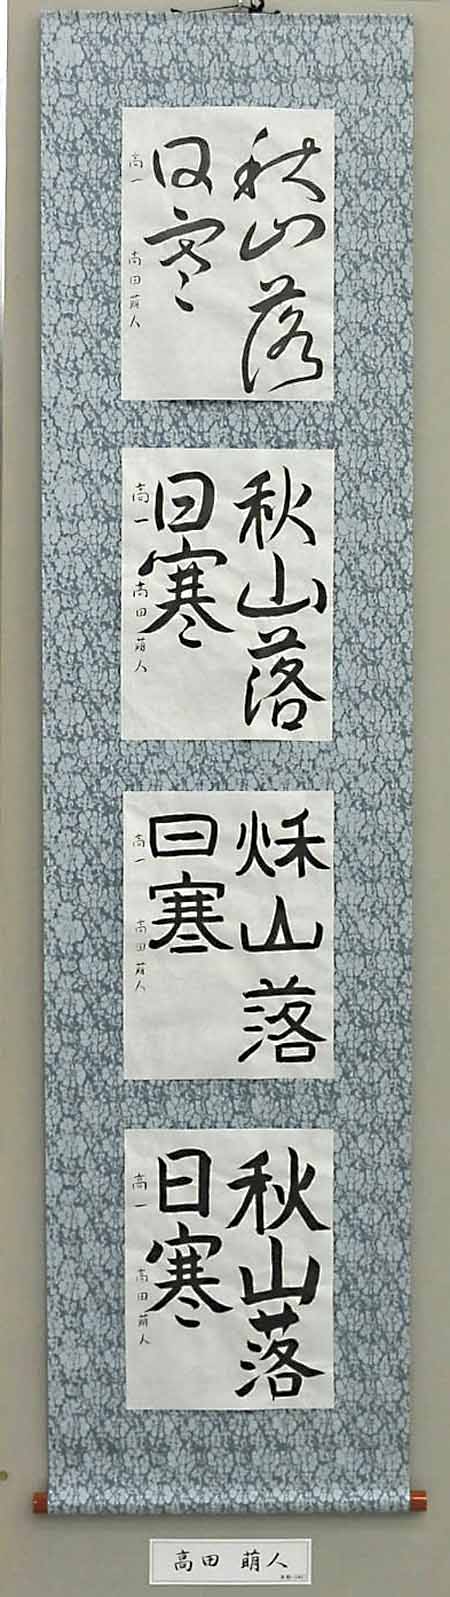 秋山落
日寒
高一 高田萌人
秋山落
日寒
高一 高田萌人
秌山落
日寒
高一 高田萌人
秋山落
日寒
高一 高田萌人
高田 萌人